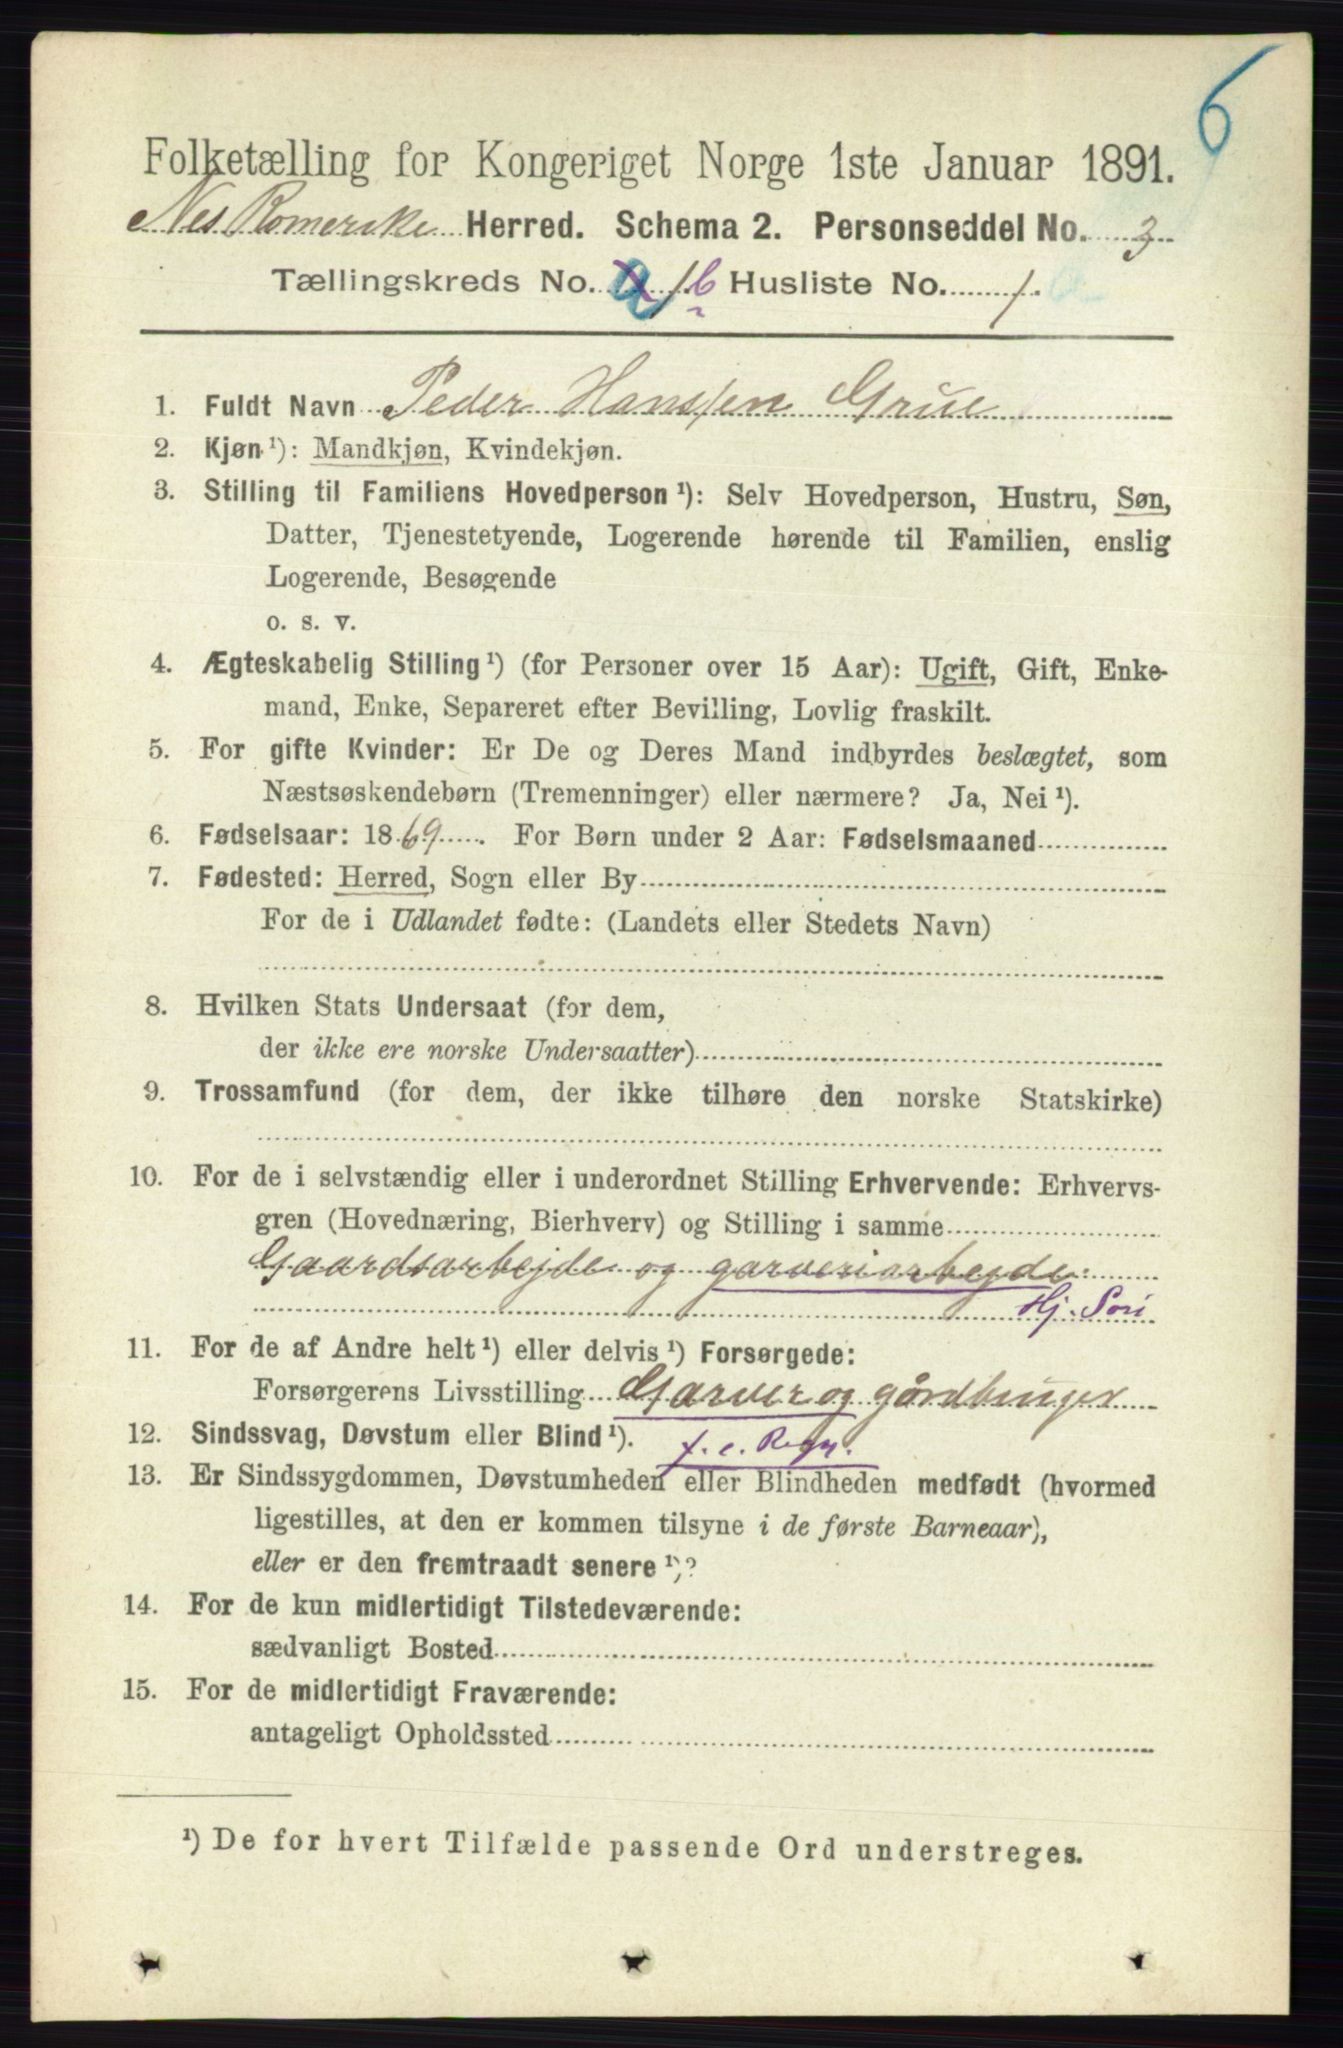 6
Folketælling for Kongeriget Norge 1ste Januar 1891.
Nes Romerike Herred. Schema 2. Personseddel No. 3
Tællingskreds No. 1b Husliste No. 1.
1. Fuldt Navn Peder Hanssen Grue
2. Kjøn ¹): Mandkjøn, Kvindekjøn.
3. Stilling til Familiens Hovedperson ¹): Selv Hovedperson, Hustru, Søn,
Datter, Tjenestetyende, Logerende hørende til Familien, enslig
Logerende, Besøgende
o. s. v.
4. Ægteskabelig Stilling ¹) (for Personer over 15 Aar): Ugift, Gift, Enke-
mand, Enke, Separeret efter Bevilling, Lovlig fraskilt.
5. For gifte Kvinder: Er De og Deres Mand indbyrdes beslægtet, som
Næstsøskendebørn (Tremenninger) eller nærmere? Ja, Nei ¹).
6. Fødselsaar: 1869. For Børn under 2 Aar: Fødselsmaaned
7. Fødested: Herred, Sogn eller By
For de i Udlandet fødte: (Landets eller Stedets Navn)
8. Hvilken Stats Undersaat (for dem,
der ikke ere norske Undersaatter)
9. Trossamfund (for dem, der ikke tilhøre den norske Statskirke)
10. For de i selvstændig eller i underordnet Stilling Erhvervende: Erhvervs-
gren (Hovednæring, Bierhverv) og Stilling i samme
Gaardsarbejde og garveriarbejde
Hj. Søn
11. For de af Andre helt ¹) eller delvis ¹) Forsørgede:
Forsørgerens Livsstilling Garver og gårdbruger
12. Sindssvag, Døvstum eller Blind ¹). f. e. Regn.
13. Er Sindssygdommen, Døvstumheden eller Blindheden medfødt (hvormed
ligestilles, at den er kommen tilsyne i de første Barneaar),
eller er den fremtraadt senere ¹)?
14. For de kun midlertidigt Tilstedeværende:
sædvanligt Bosted
15. For de midlertidigt Fraværende:
antageligt Opholdssted
¹) De for hvert Tilfælde passende Ord understreges.